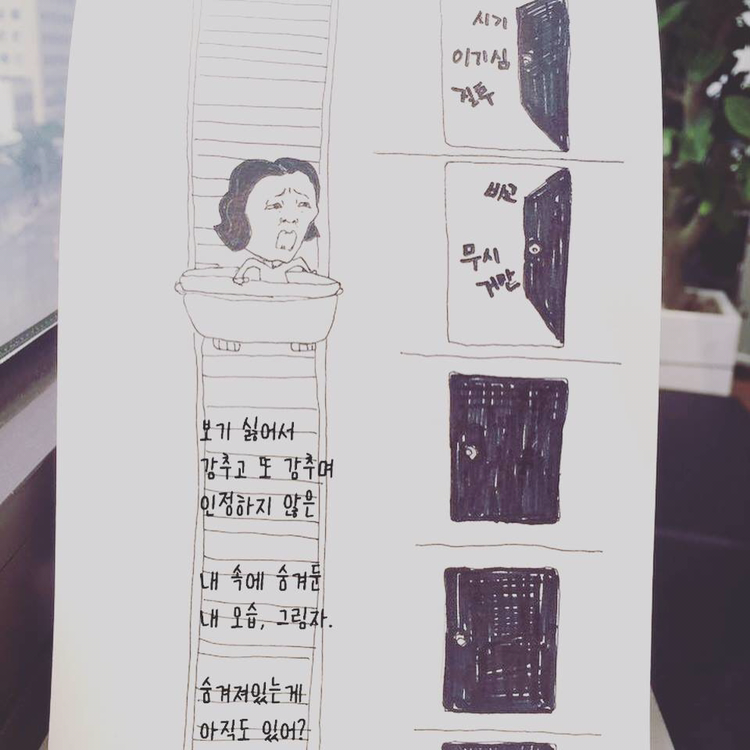 시기
이기심
질투
비교
무시
거만
보기 싫어서
감추고 또 감추며
인정하지 않은
내 속에 숨겨둔
내 모습, 그림자.
숨겨져있는게
아직도 있어?